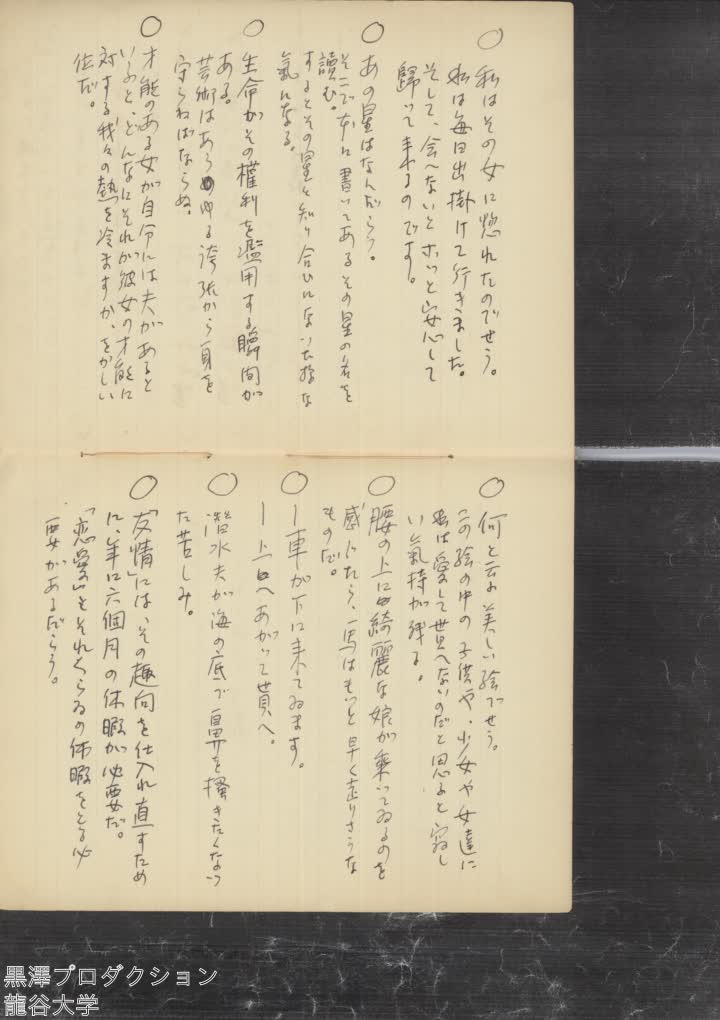 ○
私はその女に惚れたのでせう。
私は毎日出掛けて行きました。
そして、会へないとホッと安心して
歸って来るのです。
○
あの星はなんだらう。
そこで本に書いてあるその星の名を
讀む。
するとその星と知り合ひになった様な
氣になる。
○
生命がその權利を濫用する瞬間が
ある。
芸術はあらゆる誇張から自身を
守らねばならぬ。
○
才能のある女が自分には夫があると
いふと、どんなにそれが彼女の才能に
対する我々の熱を冷ますか、をかしい
位だ。
○
何と云ふ美しい絵でせう。
この絵の中の子供や、少女や女達に
私は愛して貰へないのだと思ふと寂し
い氣持が残る。
○
腰の上に綺麗な娘が乗ってゐるのを
感じたら、馬はもっと早く走りさうな
ものだ。
○
ー車が下に来てゐます。
ー上へあがって貰へ。
○
潜水夫が海の底で鼻を掻きたくなっ
た苦しみ。
○
「友情」には、その趣向を仕入れ直すため
に、年に六個月の休暇が必要だ。
「恋愛」もそれくらゐの休暇をとる必
要があるだらう。
黒澤プロダクション
龍谷大学